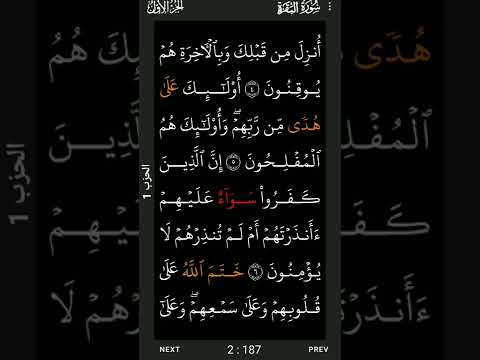 سُورَةُ البَقَرَةِ
الجُزْءُ الأَوَّلُ
أُنزِلَ مِن قَبْلِكَ وَبِالْأَخِرَةِ هُمْ
يُوقِنُونَ ٤ أُوْلَـٰٓئِكَ عَلَىٰ
هُدًى مِّن رَّبِّهِمْۖ وَأُوْلَـٰٓئِكَ هُمُ
الْمُفْلِحُونَ ٥ إِنَّ الَّذِينَ
كَفَرُواْ سَوَآءٌ عَلَيْهِمْ
ءَأَنذَرْتَهُمْ أَمْ لَمْ تُنذِرْهُمْ لَا
يُؤْمِنُونَ ٦ خَتَمَ اللَّهُ عَلَىٰ
قُلُوبِهِمْ وَعَلَىٰ سَمْعِهِمْۖ وَعَلَىٰٓ
الحزب 1
NEXT
2 : 187
PREV